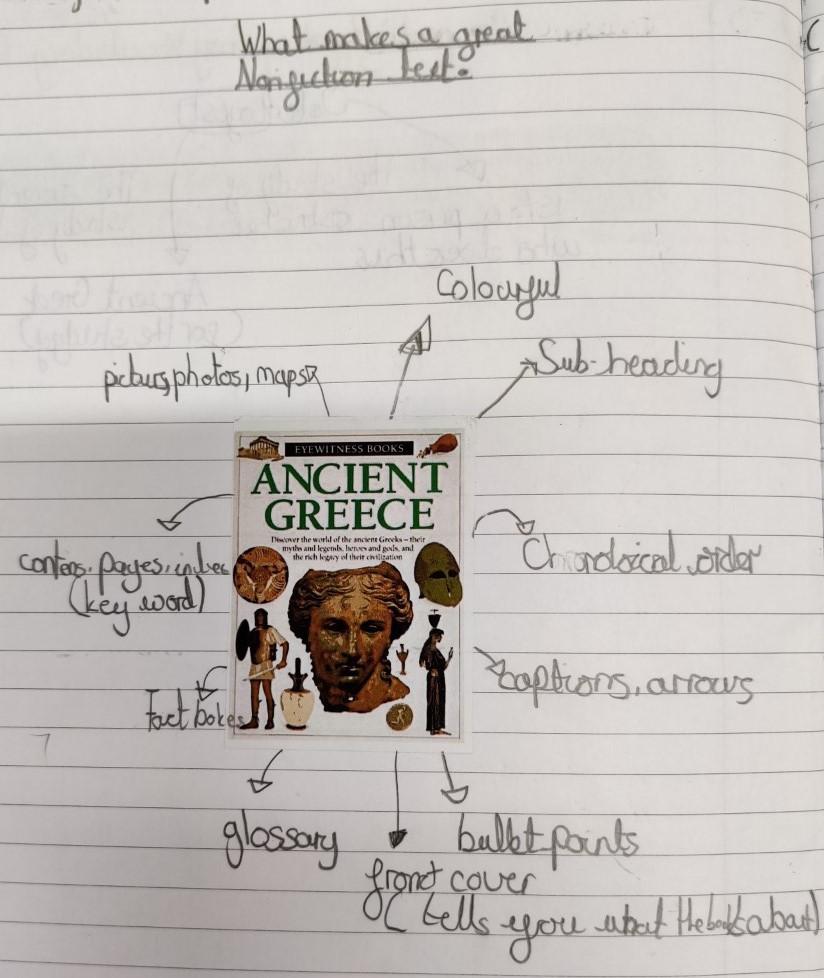 What makes a great
Nonfiction text?
Colourful
Sub-heading
photos, maps
EYEWITNESS BOOKS
ANCIENT
GREECE
Discover the world of the ancient Greeks – their
myths and legends, heroes and gods, and
the rich legacy of their civilization
order
pages,
(key word)
captions, arrows
Fact boxes
glossary
bullet points
front cover
( tells you what the books about)